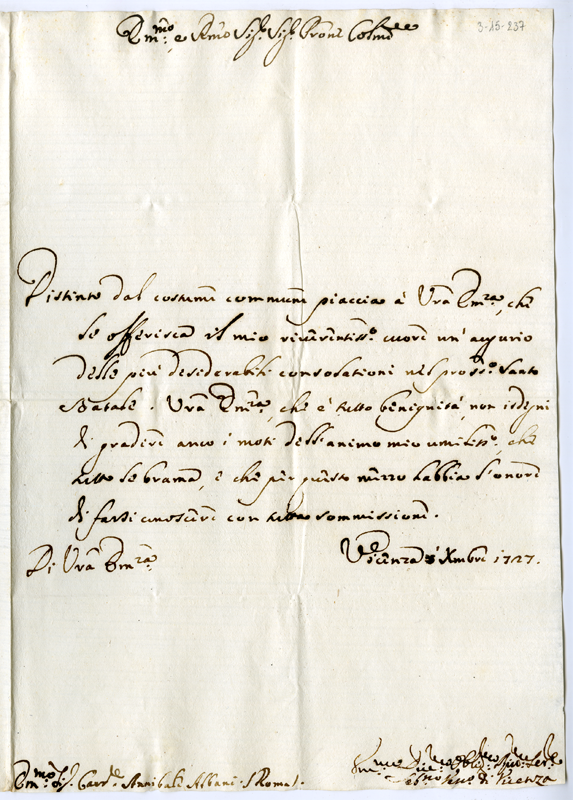 3-15-237
Em.mo e Rmo Sig.r Sig.r Prone Colmo
Distinto dal costume commune piaccia à Vrã Em.za, che
se offerisca il mio riverentiss.o cuore un' augurio
delle più desiderabili consolationi nel pross.o Santo
Natale. Vrã Em.za, che è tutto benignità, non isdegni
di gradire anco i moti dell'animo mio umiliss.o, che
tutto se brama, e che per questo mezzo habbia l'onore
di farsi conoscere con tutta sommissione.
Di Vrã Em.za
Vicenza Xmbre 1727.
Em.mo Sig.r Card.le Annibale Albani. Roma.
Vicenza